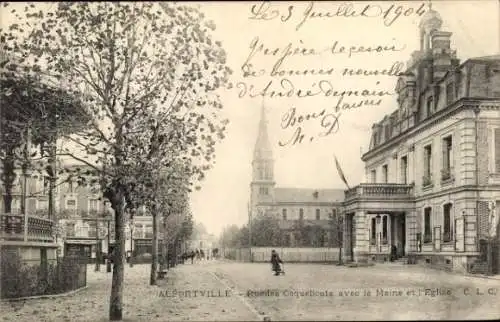 Le 3 Juillet 1904
J'espère recevoir
de bonnes nouvelles
d'André demain
Bons baisers
M. D
ALFORTVILLE - Rue des Coquelicots avec la Mairie et l'Église C. L. C.